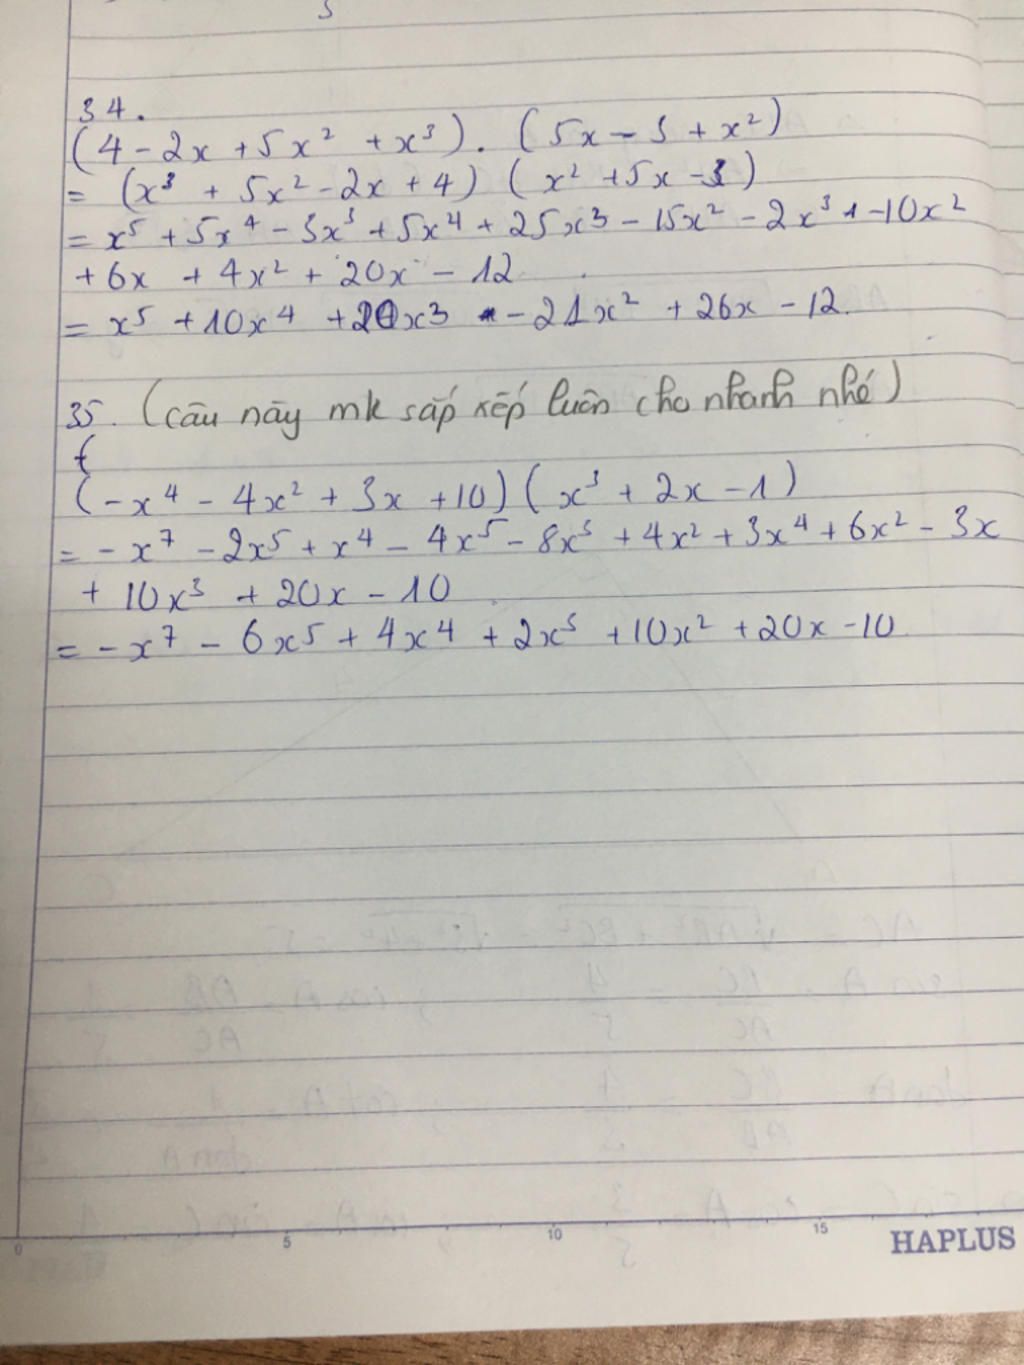 34.
(4 - 2x + 5x² + x³) . (5x - 3 + x²)
= (x³ + 5x² - 2x + 4) (x² + 5x - 3)
= x⁵ + 5x⁴ - 3x³ + 5x⁴ + 25x³ - 15x² - 2x³ - 10x²
+ 6x + 4x² + 20x - 12
= x⁵ + 10x⁴ + 20x³ - 21x² + 26x - 12.
35. (câu này mk sắp xếp luôn cho nhanh nhé)
(-x⁴ - 4x² + 3x + 10) (x³ + 2x - 1)
= -x⁷ - 2x⁵ + x⁴ - 4x⁵ - 8x³ + 4x² + 3x⁴ + 6x² - 3x
+ 10x³ + 20x - 10
= -x⁷ - 6x⁵ + 4x⁴ + 2x³ + 10x² + 20x - 10
0 5 10 15 HAPLUS